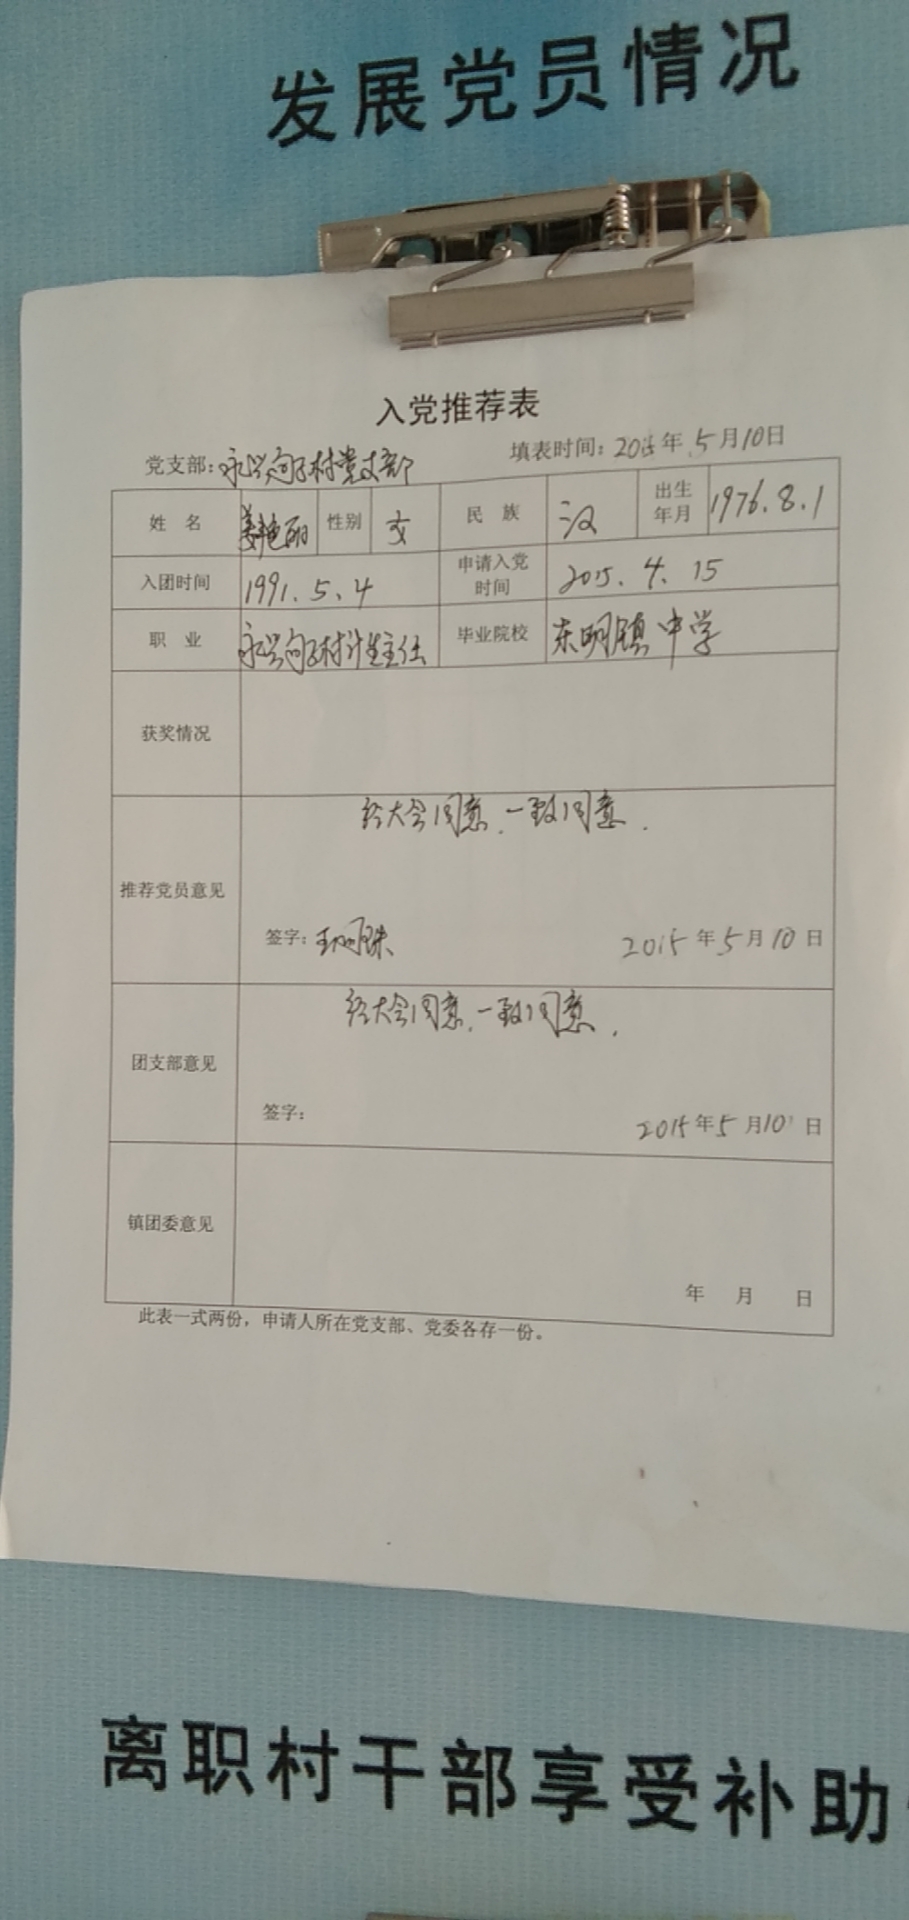 发展党员情况
入党推荐表
党支部：永兴甸子村党支部 填表时间：2015年5月10日
姓 名 姜艳丽 性别 女 民 族 汉 出生年月 1976.8.1
入团时间 1991.5.4 申请入党时间 2015.4.15
职 业 永兴甸子村计生主任 毕业院校 东明镇中学
获奖情况
经大会同意，一致同意.
推荐党员意见
签字： 2015年5月10日
经大会同意，一致同意.
团支部意见
签字： 2015年5月10日
镇团委意见
年 月 日
此表一式两份，申请人所在党支部、党委各存一份。
离职村干部享受补助